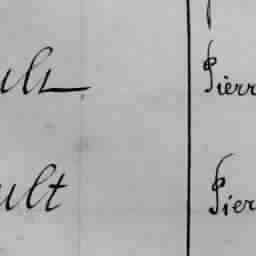 ult Pierr
ult Pier